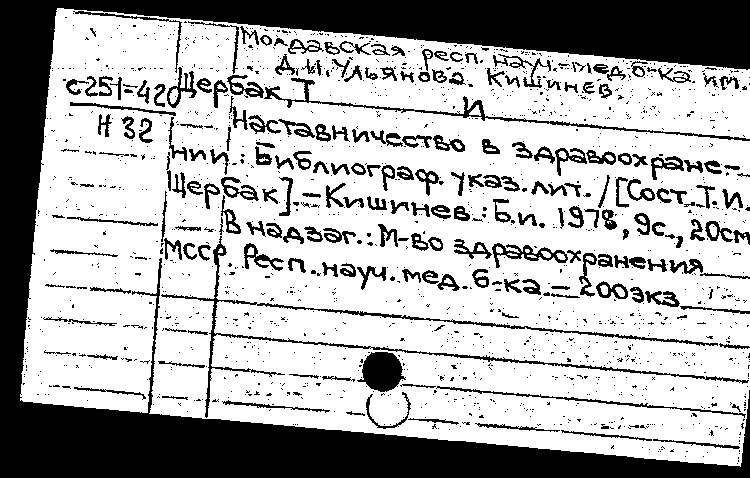 Молдавская респ. науч.-мед. б-ка им.
Д.И.Ульянова. Кишинев.
с251=420 Щербак, Т И
Н 32
Наставничество в здравоохране-
нии : Библиограф. указ. лит. / [Сост. Т.И.
Щербак]. – Кишинев : Б.и. 1978, 9с., 20см
В надзаг.: М-во здравоохранения
МССР. Респ. науч. мед. б-ка. – 200экз.